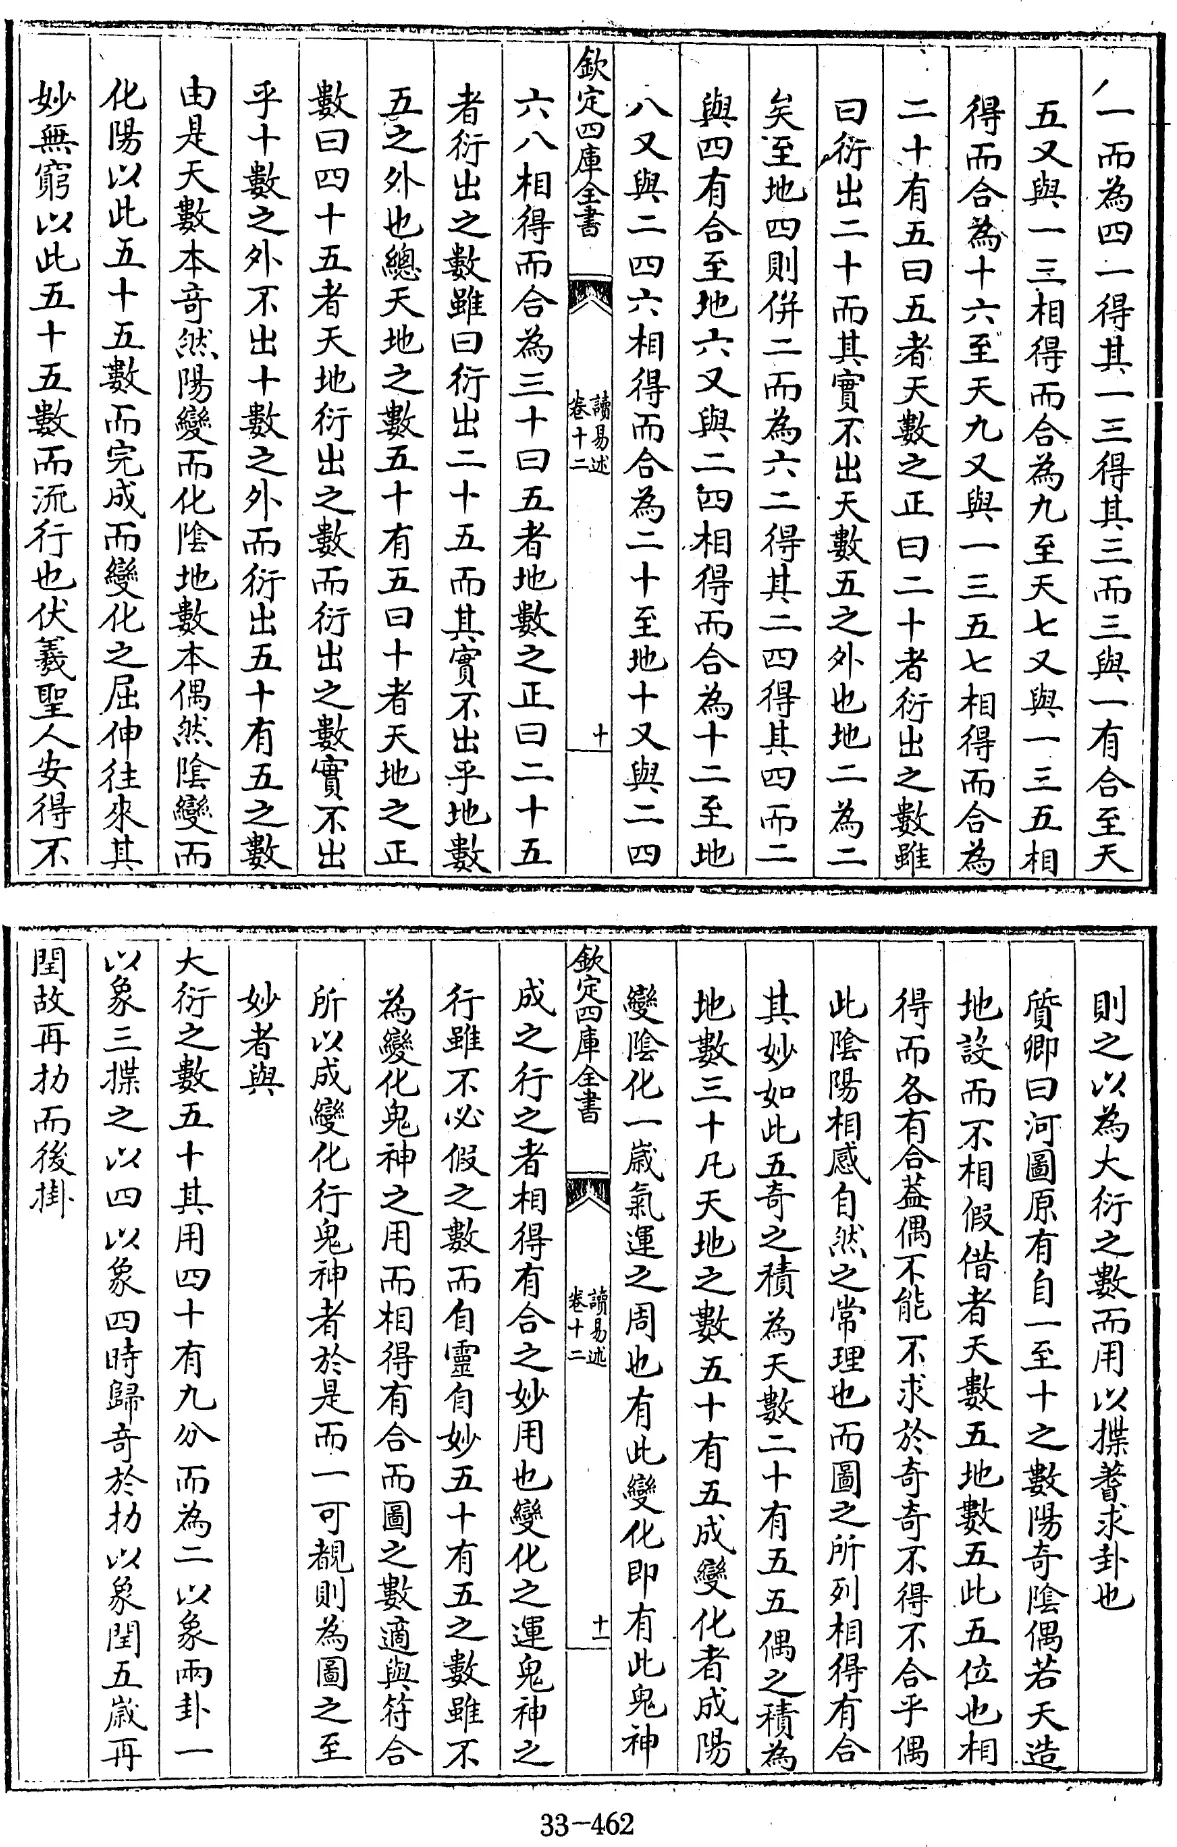 一而為四一得其一三得其三而三與一有合至天
五又與一三相得而合為九至天七又與一三五相
得而合為十六至天九又與一三五七相得而合為
二十有五曰五者天數之正曰二十者衍出之數雖
曰衍出二十而其實不出天數五之外也地二為二
矣至地四則併二而為六二得其二四得其四而二
與四有合至地六又與二四相得而合為十二至地
八又與二四六相得而合為二十至地十又與二四
欽定四庫全書
讀易述
卷十二
十
六八相得而合為三十曰五者地數之正曰二十五
者衍出之數雖曰衍出二十五而其實不出乎地數
五之外也總天地之數五十有五曰十者天地之正
數曰四十五者天地衍出之數而衍出之數實不出
乎十數之外不出十數之外而衍出五十有五之數
由是天數本奇然陽變而化陰地數本偶然陰變而
化陽以此五十五數而完成而變化之屈伸往來其
妙無窮以此五十五數而流行也伏羲聖人安得不
則之以為大衍之數而用以揲蓍求卦也
質卿曰河圖原有自一至十之數陽奇陰偶若天造
地設而不相假借者天數五地數五此五位也相
得而各有合葢偶不能不求於奇奇不得不合乎偶
此陰陽相感自然之常理也而圖之所列相得有合
其妙如此五奇之積為天數二十有五五偶之積為
地數三十凡天地之數五十有五成變化者成陽
變陰化一嵗氣運之周也有此變化即有此鬼神
欽定四庫全書
讀易述
卷十二
十一
成之行之者相得有合之妙用也變化之運鬼神之
行雖不必假之數而自靈自妙五十有五之數雖不
為變化鬼神之用而相得有合而圖之數適與符合
所以成變化行鬼神者於是而一可覩則為圖之至
妙者與
大衍之數五十其用四十有九分而為二以象兩卦一
以象三揲之以四以象四時歸奇於扐以象閏五嵗再
閏故再扐而後掛
33-462